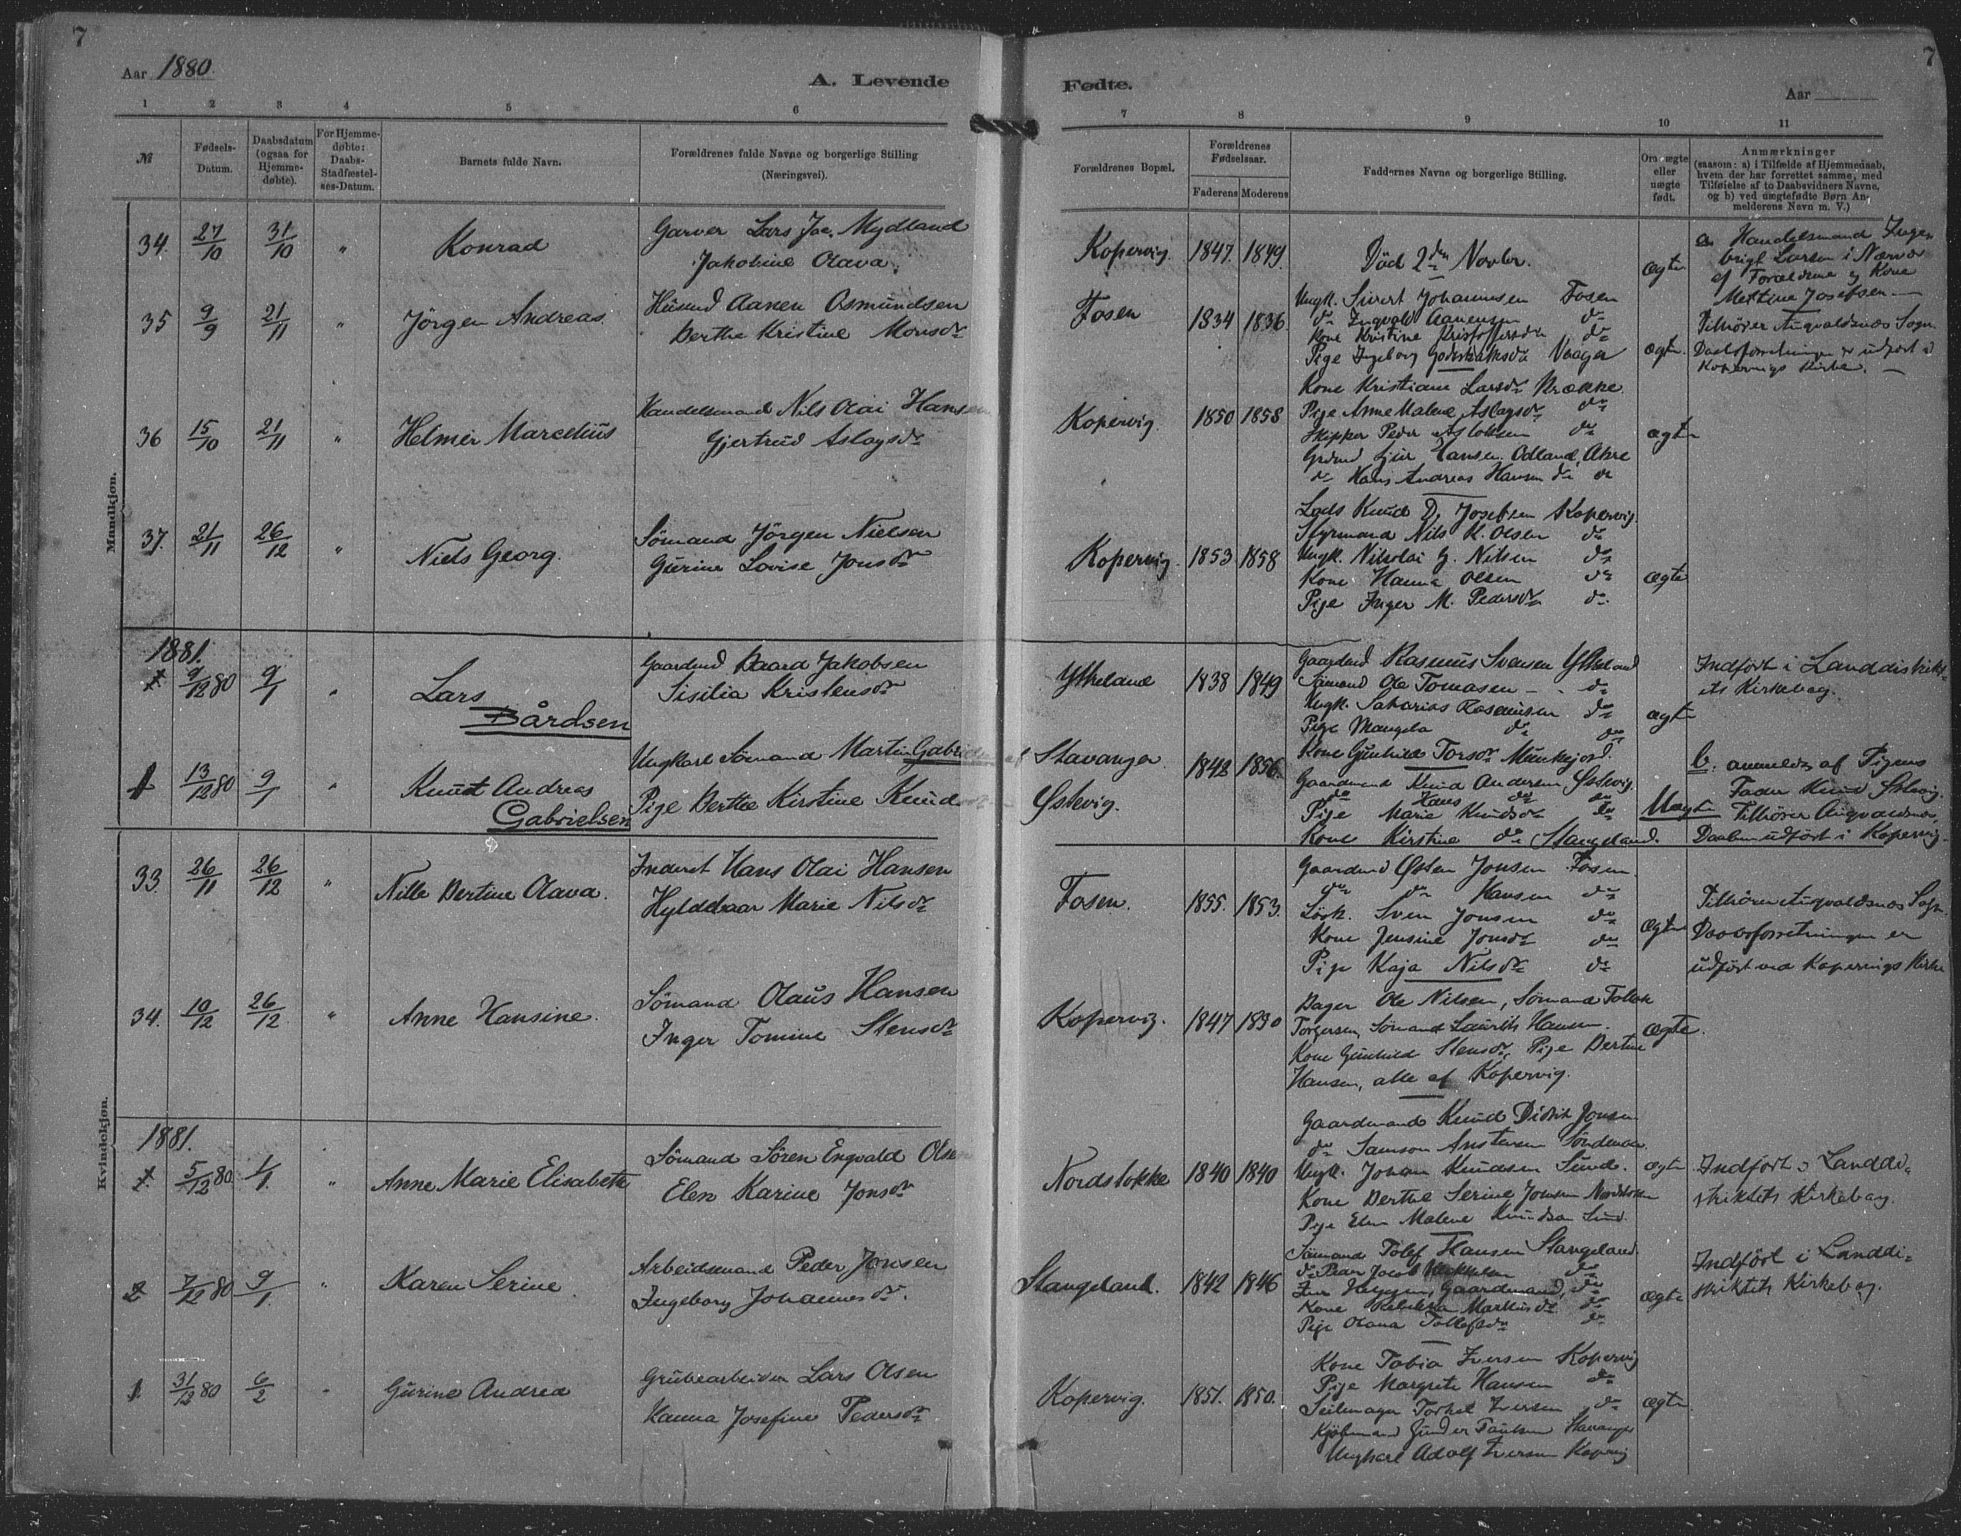 7
7
Aar 1880.
A. Levende
Fødte.
Aar
1 2 3 4 5 6 7 8 9 10 11
№
Fødsels-
Datum.
Daabsdatum
(ogsaa for
Hjemme-
døbte).
For Hjemme-
døbte:
Daabs-
Stadfæstel-
ses-Datum.
Barnets fulde Navn.
Forældrenes fulde Navne og borgerlige Stilling
(Næringsvei).
Forældrenes Bopæl.
Forældrenes
Fødselsaar.
Faderens
Moderens
Faddernes Navne og borgerlige Stilling.
Om ægte
eller
uægte
født.
Anmærkninger
(saasom: a) i Tilfælde af Hjemmedaab,
hvem der har forrettet samme, med
Tilføielse af to Daabsvidners Navne,
og b) ved uægtefødte Børn An-
melderens Navn m. V.)
Mandkjøn.
34. 27/10 31/10 " Konrad
Garver Lars Jac. Mydland
Jakobine Olava.
Kopervig. 1847. 1849.
Død 2den Novbr.
ægte
a. Handelsmand Inge-
brigt Larsen i Nærvær
af Forældrene og Kone
Mettine Josefsen.—
35 9/9 21/11 " Jörgen Andreas.
Husmd Aanen Osmundsen
Berthe Kristine Monsdr
Fosen 1834 1836.
Ungk. Sivert Johannesen Fosen
do Ingvald Aanensen do
Kone Kristine Kristoffersdr do
Pige Ingeborg Vaager
ægte.
Tilhører Augvaldsnæs Sogn
Daabsforretningen er udført i
Kopervigs Kirke. —
36 15/10 21/11 " Helmer Marcelius
Handelsmand Nils Olai Hansen
Gjertrud Aslagsdr
Kopervig. 1850 1858
Kone Kristiane Larsdr
Pige Anne Malene Aslagsdr do
Skipper Peder do
Hansen Odland, Akre
do Hans Andreas Hansen do do
ægte
37. 21/11 26/12 " Niels Georg.
Sömand Jörgen Nielsen
Gurine Lovise Jonsdr
Kopervig. 1853 1858
Lods Knud D. Josefsen Kopervig.
Styrmand Nils K. Olsen do
Ungk. Nikolai G. Nilsen do
Kone Hanna Olsen do
Pige Inger M. Pedersdr do.
ægte
1881.
1. 9/12 80 9/1 " Lars
Bårdsen
Gaardmd Baard Jakobsen
Sisilia Kristensdr
Ytheland 1838 1849
Gaardmd Rasmus Svensen Ytheland
Sömand Ole Tomasen — do
Ungk. Sakarias Rasmusen do
Pige Mangela do do
Kone Gunhilde Torsdr Munkejord.
ægte
Indført i Landdistrikt-
ets Kirkebog.
1 13/12 80 9/1 " Knut Andreas
Gabrielsen
Ungkarl Sömand Martin Gabrielsen af
Pige Berthe Kirstine Knudsdr
Stavanger 1842 1856.
Ystevig.
Gaardmand Knud Andersen Ystevig.
do Hans do do
Pige Marie Knudsdr do
Kone Kirstine do Stangeland.
Uægte
b. anmeldt af Pigens
Fader Knud Ystevig.
Tilhører Augvaldsnæs,
Daaben udført i Kopervig.
Kvindekjøn.
33. 26/11 26/12 " Nille Bertine Olava.
Inderst Hans Olai Hansen
Hyldebaar Marie Nilsdr
Fosen. 1855. 1853.
Gaardmd Østen Jonsen Fosen.
do do Hansen do
Sven Jonsen do
Kone Jensine Jonsdr do
Pige Kaja Nilsdr do
ægte
Tilhører Augvaldsnæs Sogn.
Daabsforretningen er
udført ved Kopervigs Kirke
34. 10/12 26/12 " Anne Hansine.
Sömand Olaus Hansen
Inger Tomine Stensdr
Kopervig. 1847 1830
Bager Ole Nilsen, Sömand Tollak
Torgersen, Sömand Laurits Hansen.
Kone Gunhild Stensdr, Pige Bertine
Hansen, alle af Kopervig.
ægte.
1881.
1. 5/12 80. 1/1. " Anne Marie Elisabeth
Sömand Sören Engvald Olsen
Elen Karine Jonsdr
Nordstokke 1840 1840
Gaardmand Knud Didrik Jonsen
do Samson Anstensen
Ungk. Johan Knudsen Sund.
Kone Berthe Serine Jonsen Nordstokke
Pige Elen Malene Knudsen Sund.
ægte
Indført i Landdi-
striktets Kirkebog.
2 7/12 80 9/1 " Karen Serine
Arbeidsmand Peder Jonsen
Ingeborg Johannesdr.
Stangeland. 1842 1846
Sömand Tolef Hansen Stangeland.
do Peder Jacob do
Gaardmand, do
Kone Markusdr do
Pige Olava Tollefsdr do
ægte
Indført i Landdi-
striktets Kirkebog.
1 31/12 80 6/2 " Gurine Andrea
Grubearbeider Lars Olsen
Hanna Josefine Pedersdr.
Kopervig. 1851. 1850.
Kone Tobia Iversen Kopervig
Pige Margrete Hansen do
Seilmager Torkel Iversen do
Kjøbmand Gunder Paulsen Stavanger
Ungkarl Adolf Iversen Kopervig
ægte.